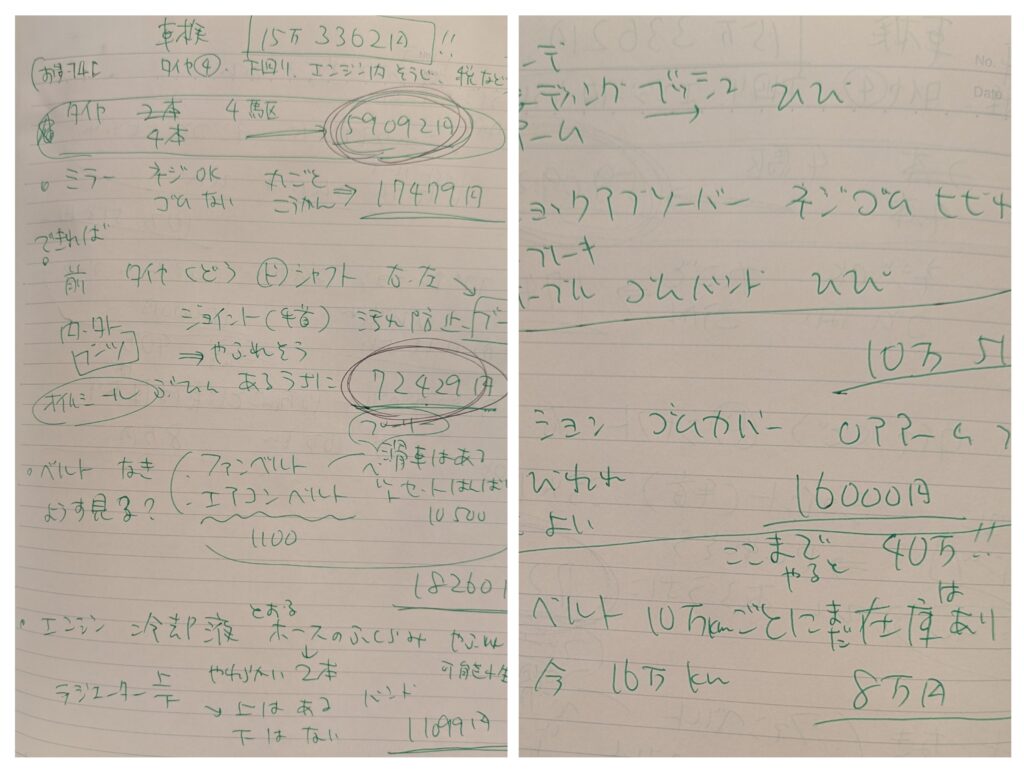 車検 15万3362円!!
タイヤ④、下回り、エンジン内そうじ、税など
タイヤ 2本 4駆
4本 → 59092円
ミラー ネジOK 丸ごと
ゴムない こうかん ⇒ 17479円
できれば
前 タイヤ くどう ㋣シャフト 右、左
ジョイント(4首) 汚れ防止 ブー
内・外
⇒やぶれそう
オイルシール あるうちに 72429円
ベルト なき ・ファンベルト 滑車はある
ようす見る? ・エアコンベルト
10500
1100
18260
エンジン 冷却液 とおる ホースのふくらみ やぶれ
可能性
ラジエーター 上下 やわらかい 2本
→ 上は ある バンド
下は ない
11099円
ーデ
ディング ブッシュ ひび
アーム
ョックアブソーバー ネジゴム ヒビ
ブレーキ
ーブル ゴムバンド ひび
10万 51
ション ゴムカバー ロアアーム
びれ
16000円
よい
ここまで 40万!!
やると
ベルト 10万kmごとに まだ在庫はあり
今 16万km
8万円
No.
Date